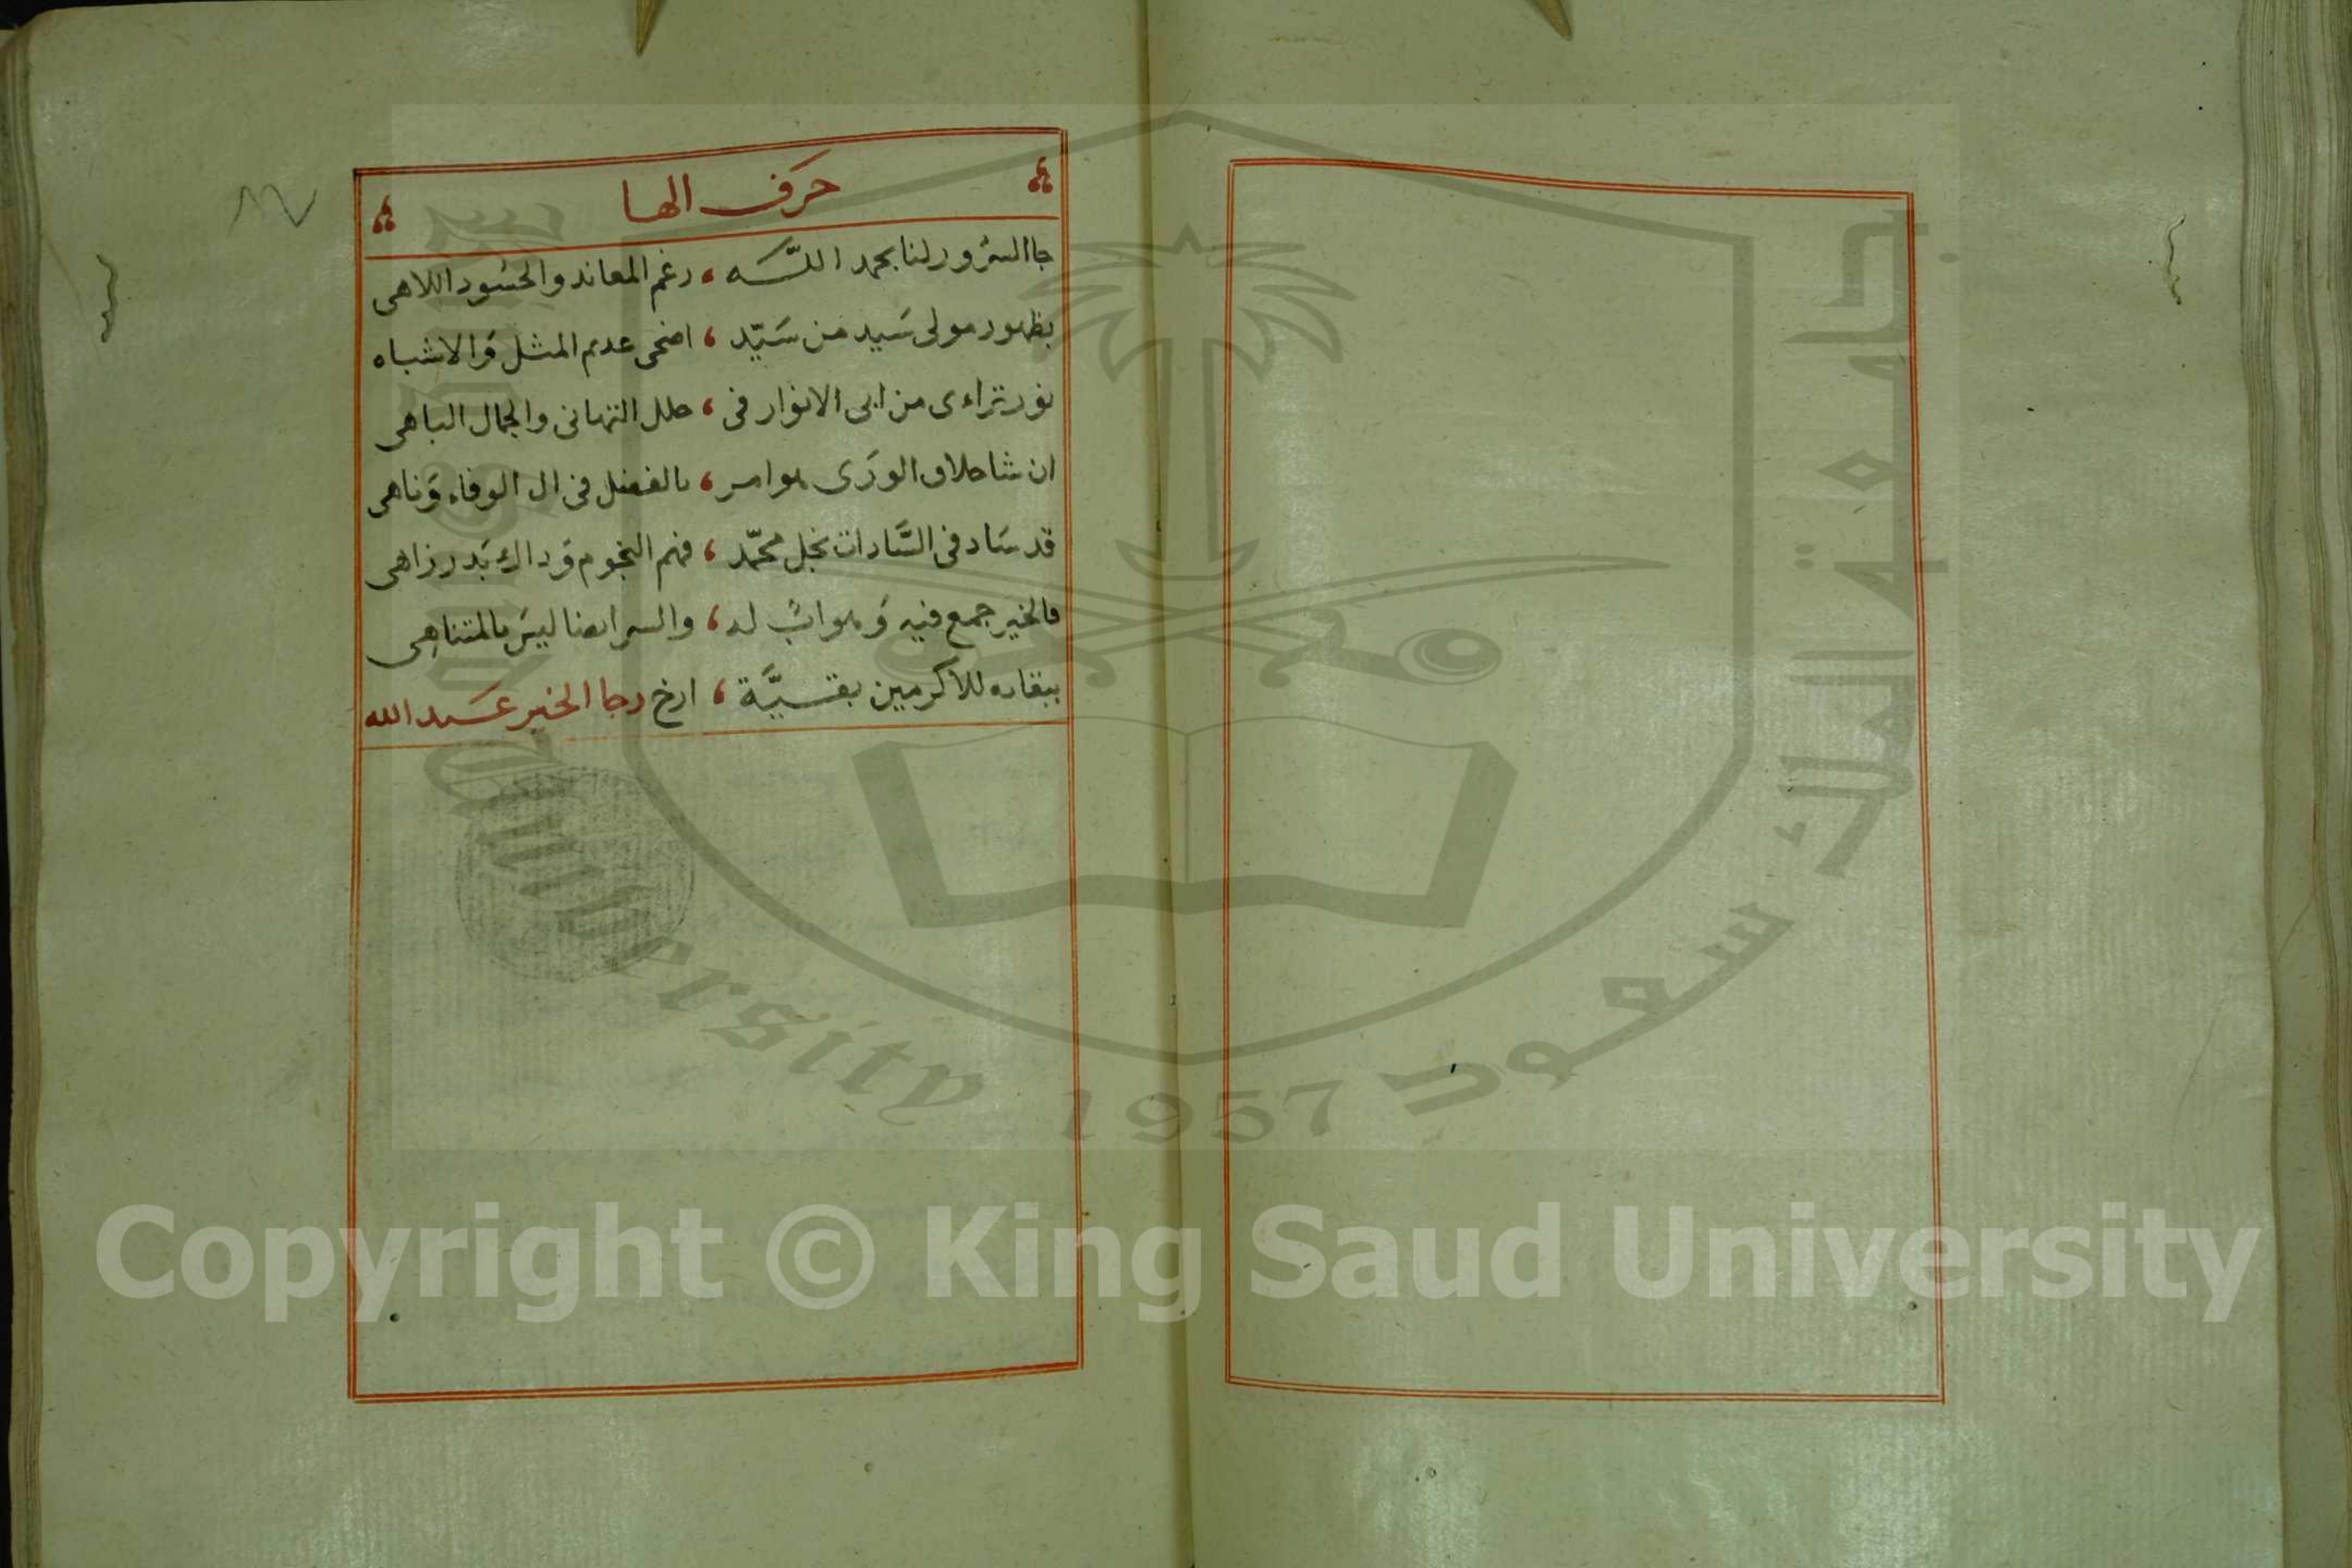 حرف الها
جا السرور لنا بحمد اللَّه ، رغم المعاند والحسود اللاهى
بظهور مولى سَيد من سَيّد ، اضحى عديم المثل وَالاشباه
نور تراءى من ابى الانوار فى ، حلل التهانى والجمال الباهى
ان شا الورَى ، بالفضل فى ال الوفاء وَناهى
قد سَاد فى السَّادات نجل محمّد ، فهم النجوم وَذاك بَدر زاهى
فالخير جمع فيه ، والسر ايضا ليسَ بالمتناهِى
ببقاءه للاكرمين بقيَّة ، ارخ رجا الخير عَبد الله
١٧
جامعة الملك سعود
University 1957
Copyright © King Saud University